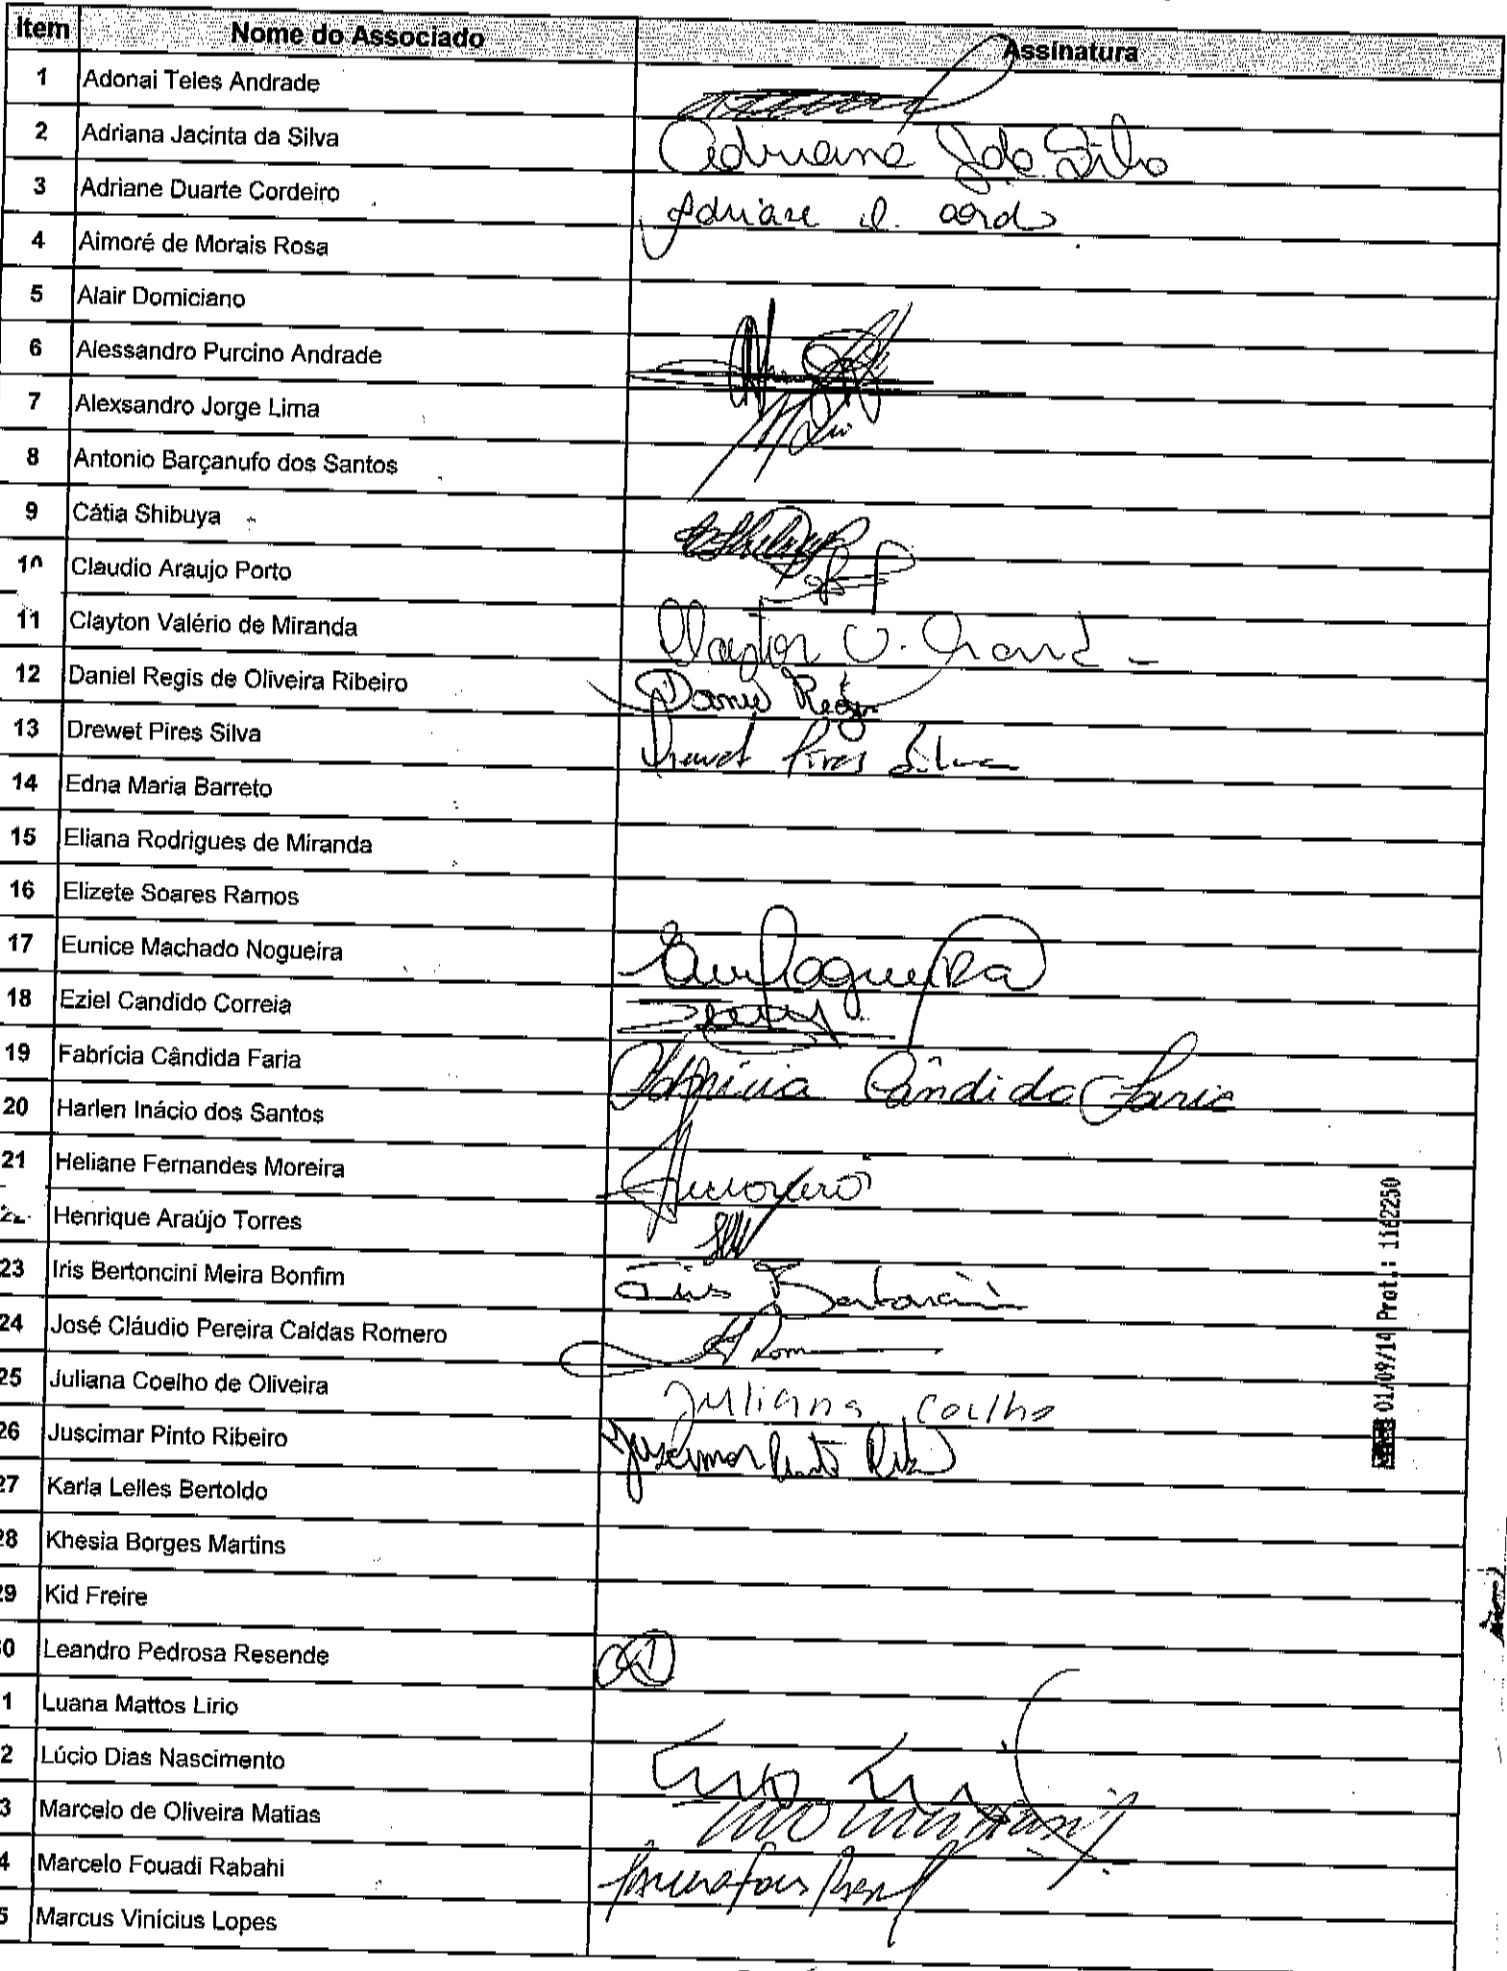 Item Nome do Associado Assinatura
1 Adonai Teles Andrade
2 Adriana Jacinta da Silva Adriana J da Silva
3 Adriane Duarte Cordeiro Adriane D.
4 Aimoré de Morais Rosa
5 Alair Domiciano
6 Alessandro Purcino Andrade
7 Alexsandro Jorge Lima
8 Antonio Barçanufo dos Santos
9 Cátia Shibuya
10 Claudio Araujo Porto
11 Clayton Valério de Miranda Clayton V.
12 Daniel Regis de Oliveira Ribeiro Daniel Regis
13 Drewet Pires Silva Drewet Pires Silva
14 Edna Maria Barreto
15 Eliana Rodrigues de Miranda
16 Elizete Soares Ramos
17 Eunice Machado Nogueira
18 Eziel Candido Correia
19 Fabrícia Cândida Faria Fabrícia Cândida Faria
20 Harlen Inácio dos Santos
21 Heliane Fernandes Moreira
22 Henrique Araújo Torres
23 Iris Bertoncini Meira Bonfim Iris Bertoncini
24 José Cláudio Pereira Caldas Romero
25 Juliana Coelho de Oliveira Juliana Coelho
26 Juscimar Pinto Ribeiro Juscimar Pinto
27 Karla Lelles Bertoldo
28 Khesia Borges Martins
29 Kid Freire
0 Leandro Pedrosa Resende
1 Luana Mattos Lirio
2 Lúcio Dias Nascimento
3 Marcelo de Oliveira Matias
4 Marcelo Fouadi Rabahi
5 Marcus Vinícius Lopes
01/09/14 Prot.: 1162250